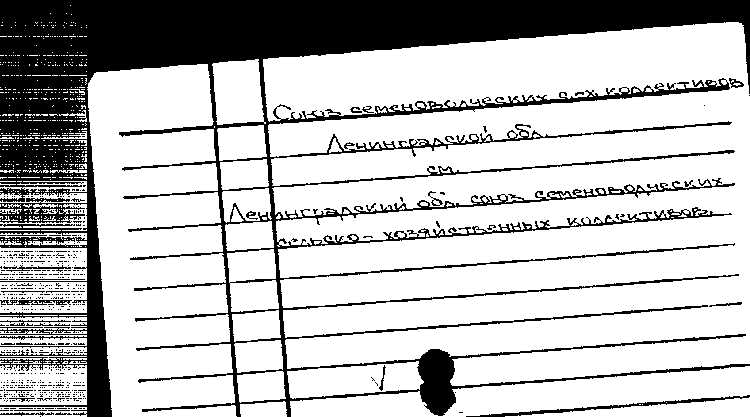 Союз семеноводческих с.-х. коллективов
Ленинградской обл.
см.
Ленинградский обл. союз семеноводческих
сельско-хозяйственных коллективов.